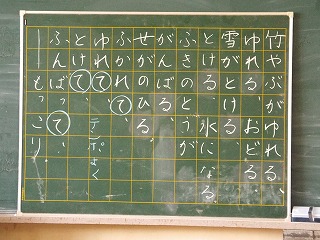 竹やぶがゆれる、
ゆれる、おどる、
雪がとける
とける、水になる、
ふきのとうが
がんばる、
せがのびる、
ふかれて、
ゆれて、テンポよく
とけて、
ふんばって、
ーーもっこり